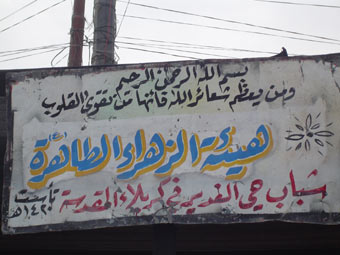 بسم الله الرحمن الرحيم
ومن يعظم شعائر الله فانها من تقوى القلوب
هيئة الزهراء الطاهرة (ع)
شباب حي الغدير في كربلاء المقدسة
تأسست ١٤٢٠هـ